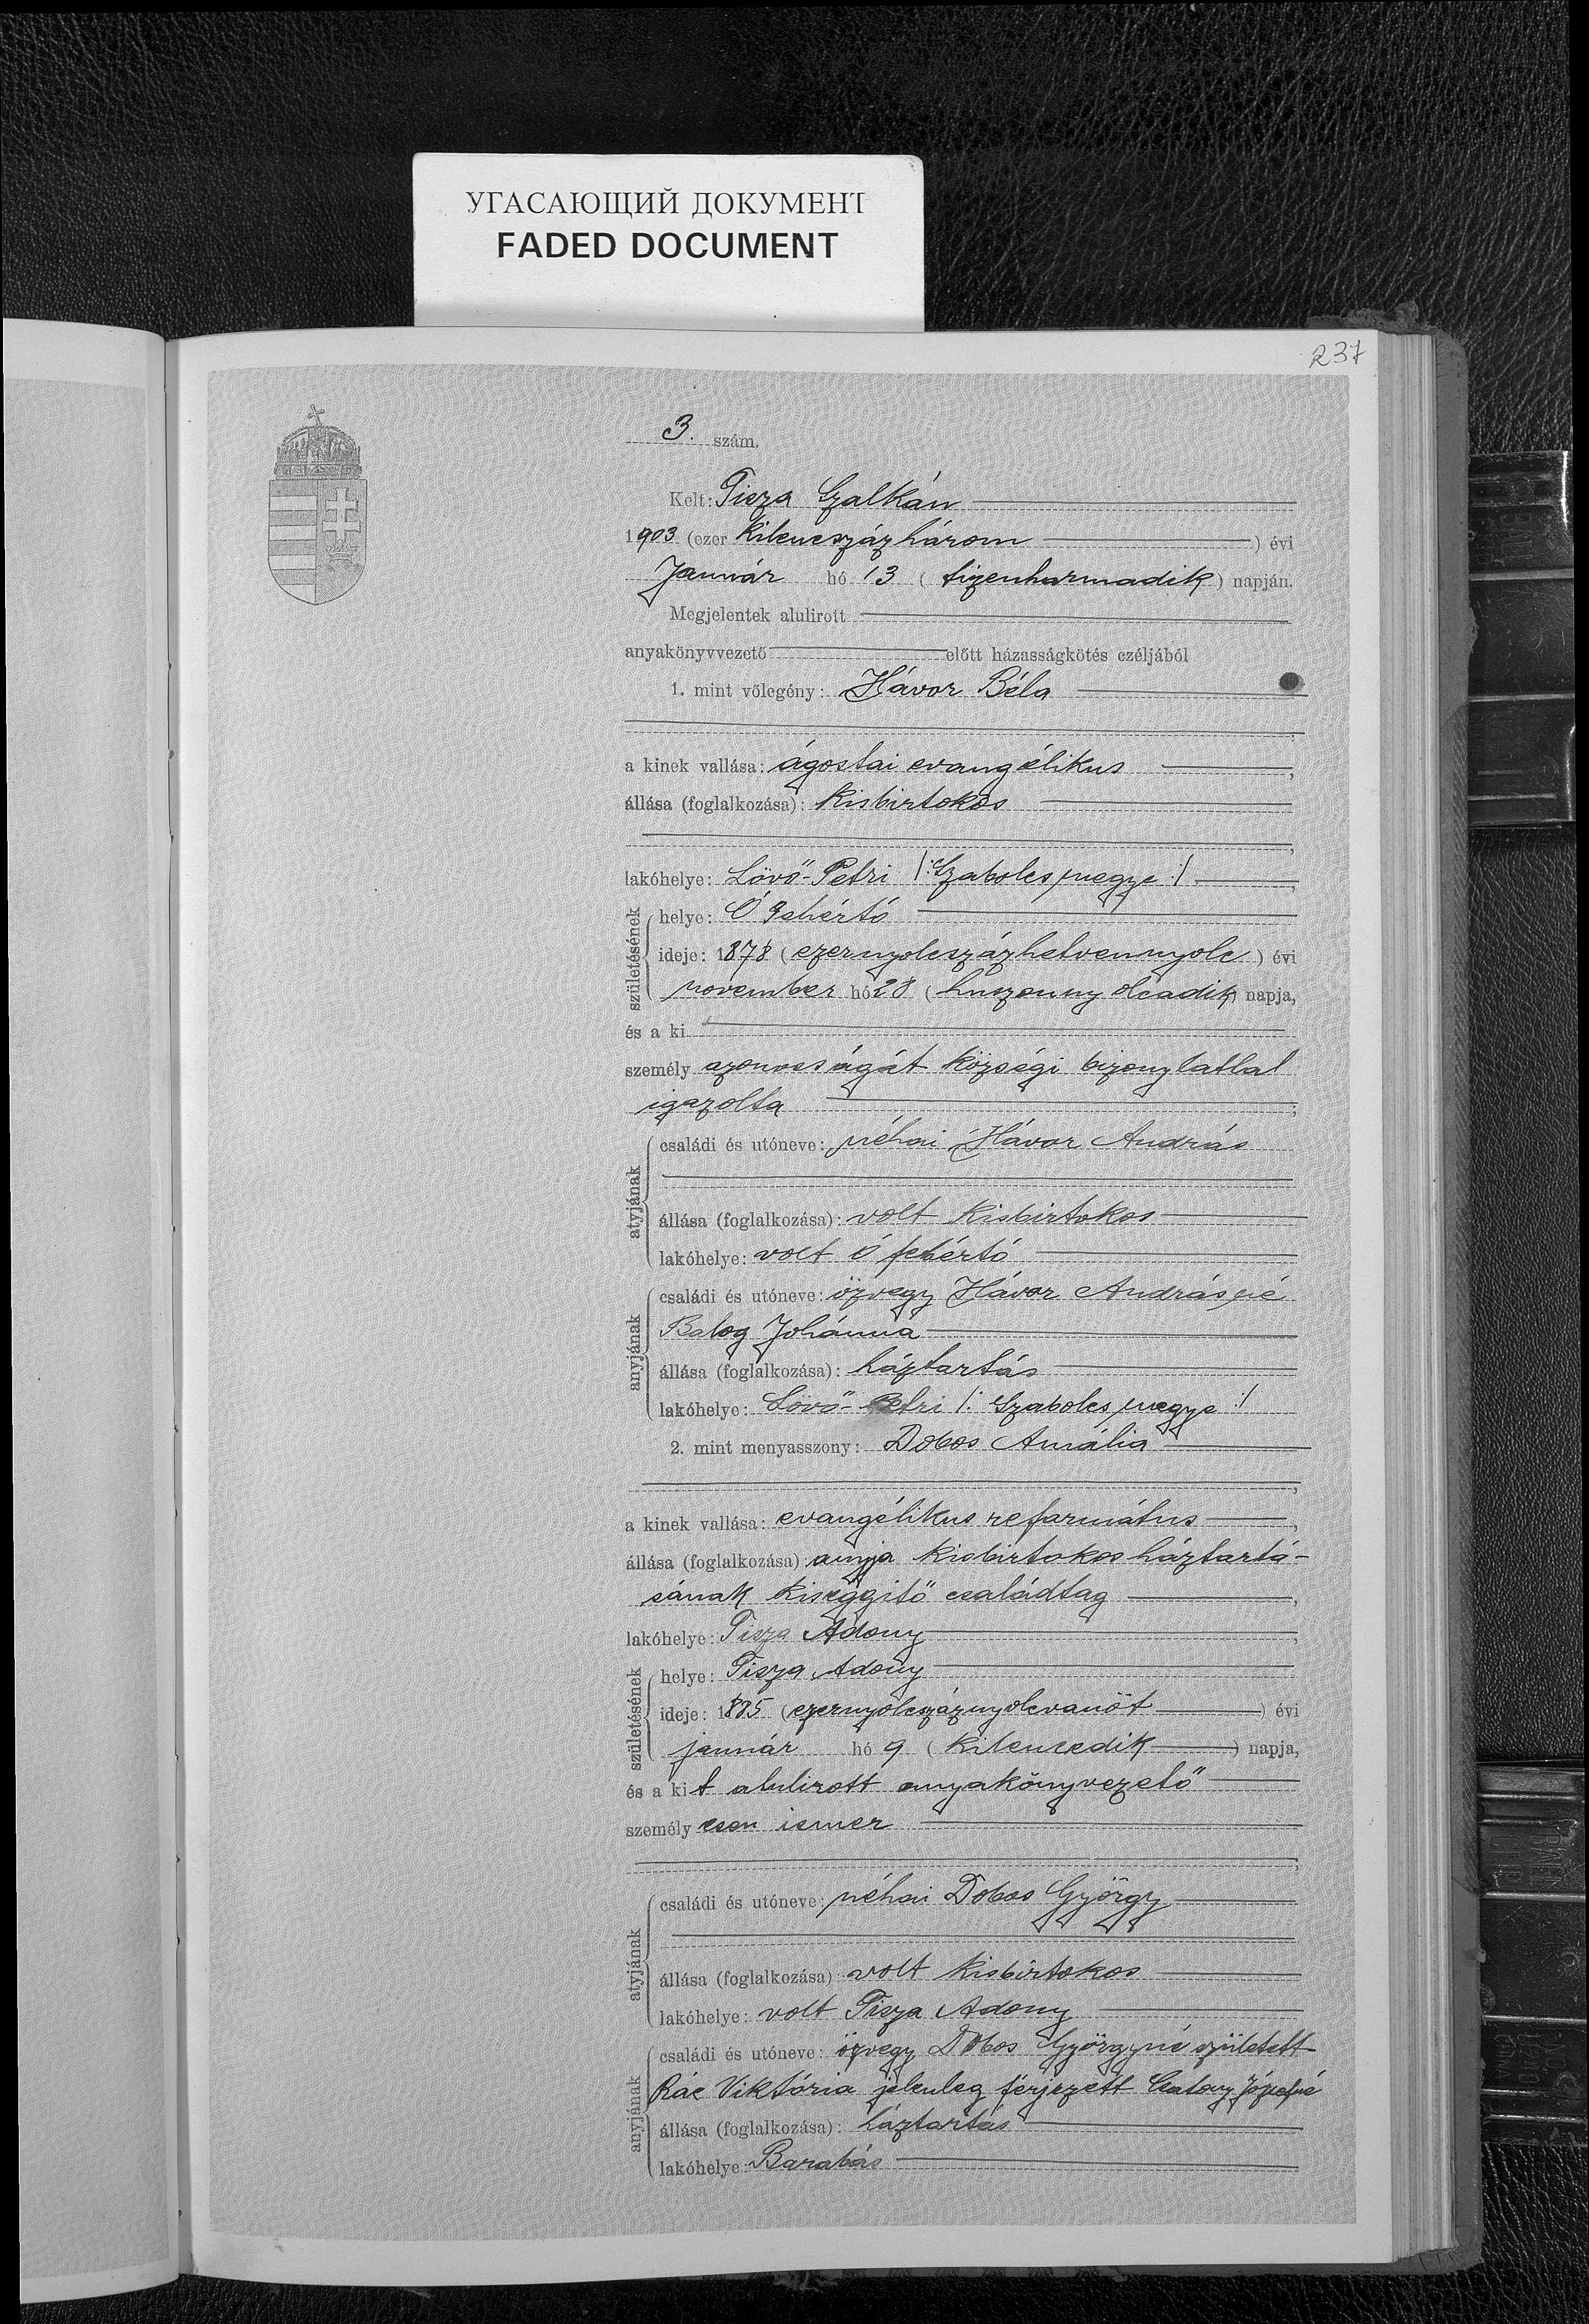 УГАСАЮЩИЙ ДОКУМЕНТ
FADED DOCUMENT
237
3. szám.
Kelt: Tisza Szalkán
1903 (ezer kilencszázhárom) évi
Január hó 13 (tizenharmadik) napján.
Megjelentek alulirott
anyakönyvvezető előtt házasságkötés czéljából
1. mint vőlegény: Hávor Béla
a kinek vallása: ágostai evangélikus,
állása (foglalkozása): kisbirtokos
lakóhelye: Lövő-Petri /: Szabolcs megye :/,
születésének
helye: Ó Fehértó
ideje: 1878 (ezernyolcszázhetvennyolc) évi
november hó 28 (huszonnyolcadik) napja,
és a ki
személy azonosságát községi bizonylattal
igazolta;
atyjának
családi és utóneve: néhai Hávor András
állása (foglalkozása): volt kisbirtokos
lakóhelye: volt Ó fehértó
anyjának
családi és utóneve: özvegy Hávor Andrásné
Balog Johánna
állása (foglalkozása): háztartás
lakóhelye: Lövő-Petri /: Szabolcs megye :/
2. mint menyasszony: Dobos Amália
a kinek vallása: evangélikus református,
állása (foglalkozása) anyja kisbirtokos háztartá-
sának kiseggitő családtag,
lakóhelye: Tisza Adony,
születésének
helye: Tisza Adony
ideje: 1885 (ezernyolcszáznyolcvanöt) évi
január hó 9 (kilencedik) napja,
és a kit alulirott anyakönyvezető
személy esen ismer
atyjának
családi és utóneve: néhai Dobos György
állása (foglalkozása): volt kisbirtokos
lakóhelye: volt Tisza Adony
anyjának
családi és utóneve: özvegy Dobos Györgyné született
Rác Viktória jelenleg férjezett Józsefné
állása (foglalkozása): háztartás
lakóhelye: Barabás